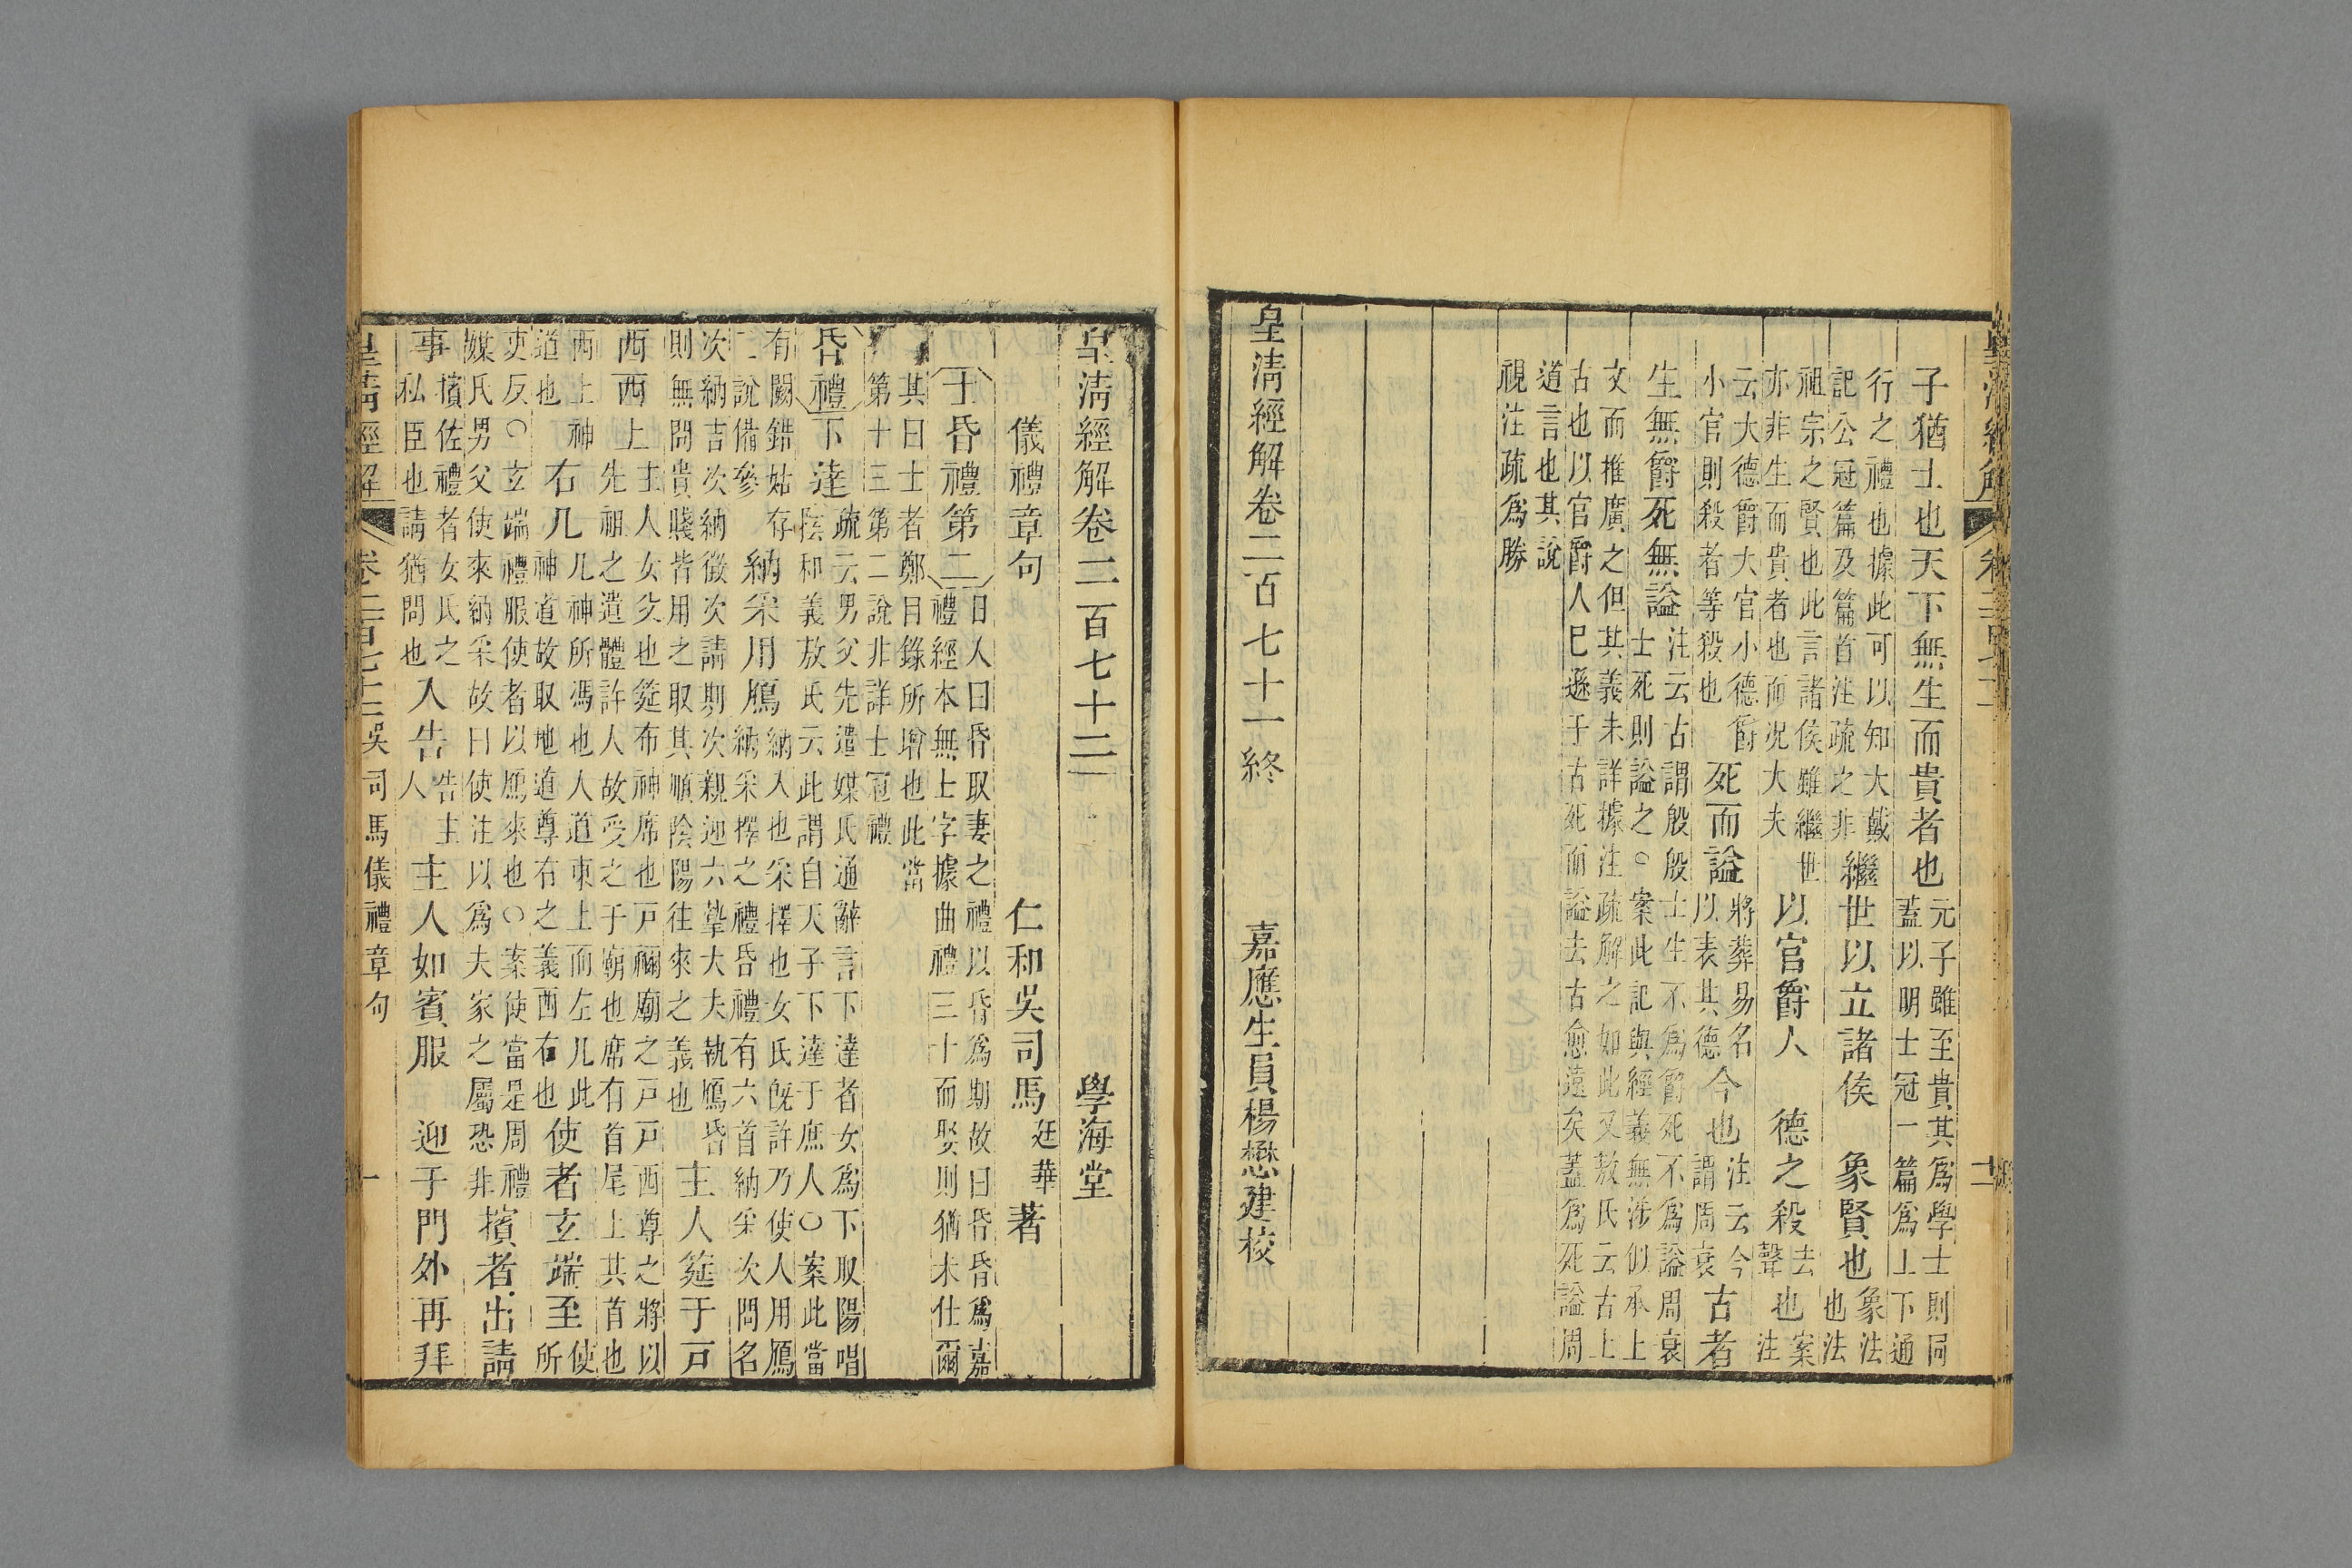 子猶士也天下無生而貴者也元子雖至貴其爲學士則同蓋以明士冠一篇爲上下通
行之禮也據此可以知大戴記公冠篇及篇首注疏之非繼世以立諸侯象賢也象法也法
祖宗之賢也此言諸侯雖繼世亦非生而貴者也而況大夫以官爵人德之殺去聲也案注
云大德爵大官小德爵小官則殺者等殺也死而謚將葬易名以表其德今也注云今謂周衰古者
生無爵死無謚注云古謂殷殷士生不爲爵死不爲謚周衰士死則謚之○案此記與經義無涉似承上
文而推廣之但其義未詳據注疏解之如此又敖氏云古上古也以官爵人已遜于古死而謚去古愈遠矣蓋爲死謚周
道言也其說視注疏爲勝
皇清經解卷二百七十一終 嘉應生員楊懋建校
皇清經解卷二百七十二 學海堂
儀禮章句 仁和吳司馬廷華著
士昏禮第二日入曰昏取妻之禮以昏爲期故曰昏昏爲嘉禮經本無士字據曲禮三十而娶則猶未仕爾
其曰士者鄭目錄所增也此當第十三第二說非詳士冠禮
昏禮下達疏云男父先遣媒氏通辭言下達者女爲下取陽唱陰和義敖氏云此謂自天子下達于庶人○案此當
有闕錯姑存二說備參納采用鴈納入也采擇也女氏既許乃使人用鴈納采擇之禮昏禮有六首納采次問名
次納吉次納徵次請期次親迎六摯大夫執鴈昏則無問貴賤皆用之取其順陰陽往來之義也主人筵于戶
西西上主人女父也筵布神席也戶禰廟之戶戶西尊之將以先祖之遺體許人故受之于廟也席有首尾上其首也
西上神道也右几几神所馮也人道東上而左几此神道故取地道尊右之義西右也使者玄端至使所
吏反○玄端禮服使者以鴈來也○案使當是周禮媒氏男父使來納采故曰使注以爲夫家之屬恐非擯者出請
事擯佐禮者女氏之私臣也請猶問也入告告主人主人如賓服迎于門外再拜
皇清經解 卷二百七十二 吳司馬儀禮章句 一